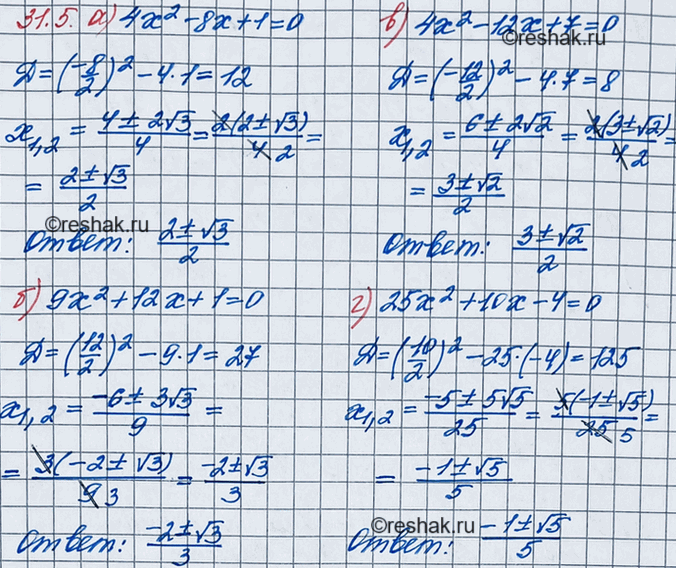 31.5. а) 4x² - 8x + 1 = 0
Д = (-8/2)² - 4·1 = 12
x₁,₂ = (4 ± 2√3)/4 = 2(2 ± √3)/4 2 =
= (2 ± √3)/2
Ответ: (2 ± √3)/2
©reshak.ru
б) 9x² + 12x + 1 = 0
Д = (12/2)² - 9·1 = 27
x₁,₂ = (-6 ± 3√3)/9 =
= 3(-2 ± √3)/9 3 = (-2 ± √3)/3
Ответ: (-2 ± √3)/3
в) 4x² - 12x + 7 = 0
©reshak.ru
Д = (-12/2)² - 4·7 = 8
x₁,₂ = (6 ± 2√2)/4 = 2(3 ± √2)/4 2 =
= (3 ± √2)/2
Ответ: (3 ± √2)/2
г) 25x² + 10x - 4 = 0
Д = (10/2)² - 25·(-4) = 125
x₁,₂ = (-5 ± 5√5)/25 = 5(-1 ± √5)/25 5 =
= (-1 ± √5)/5
©reshak.ru
Ответ: (-1 ± √5)/5